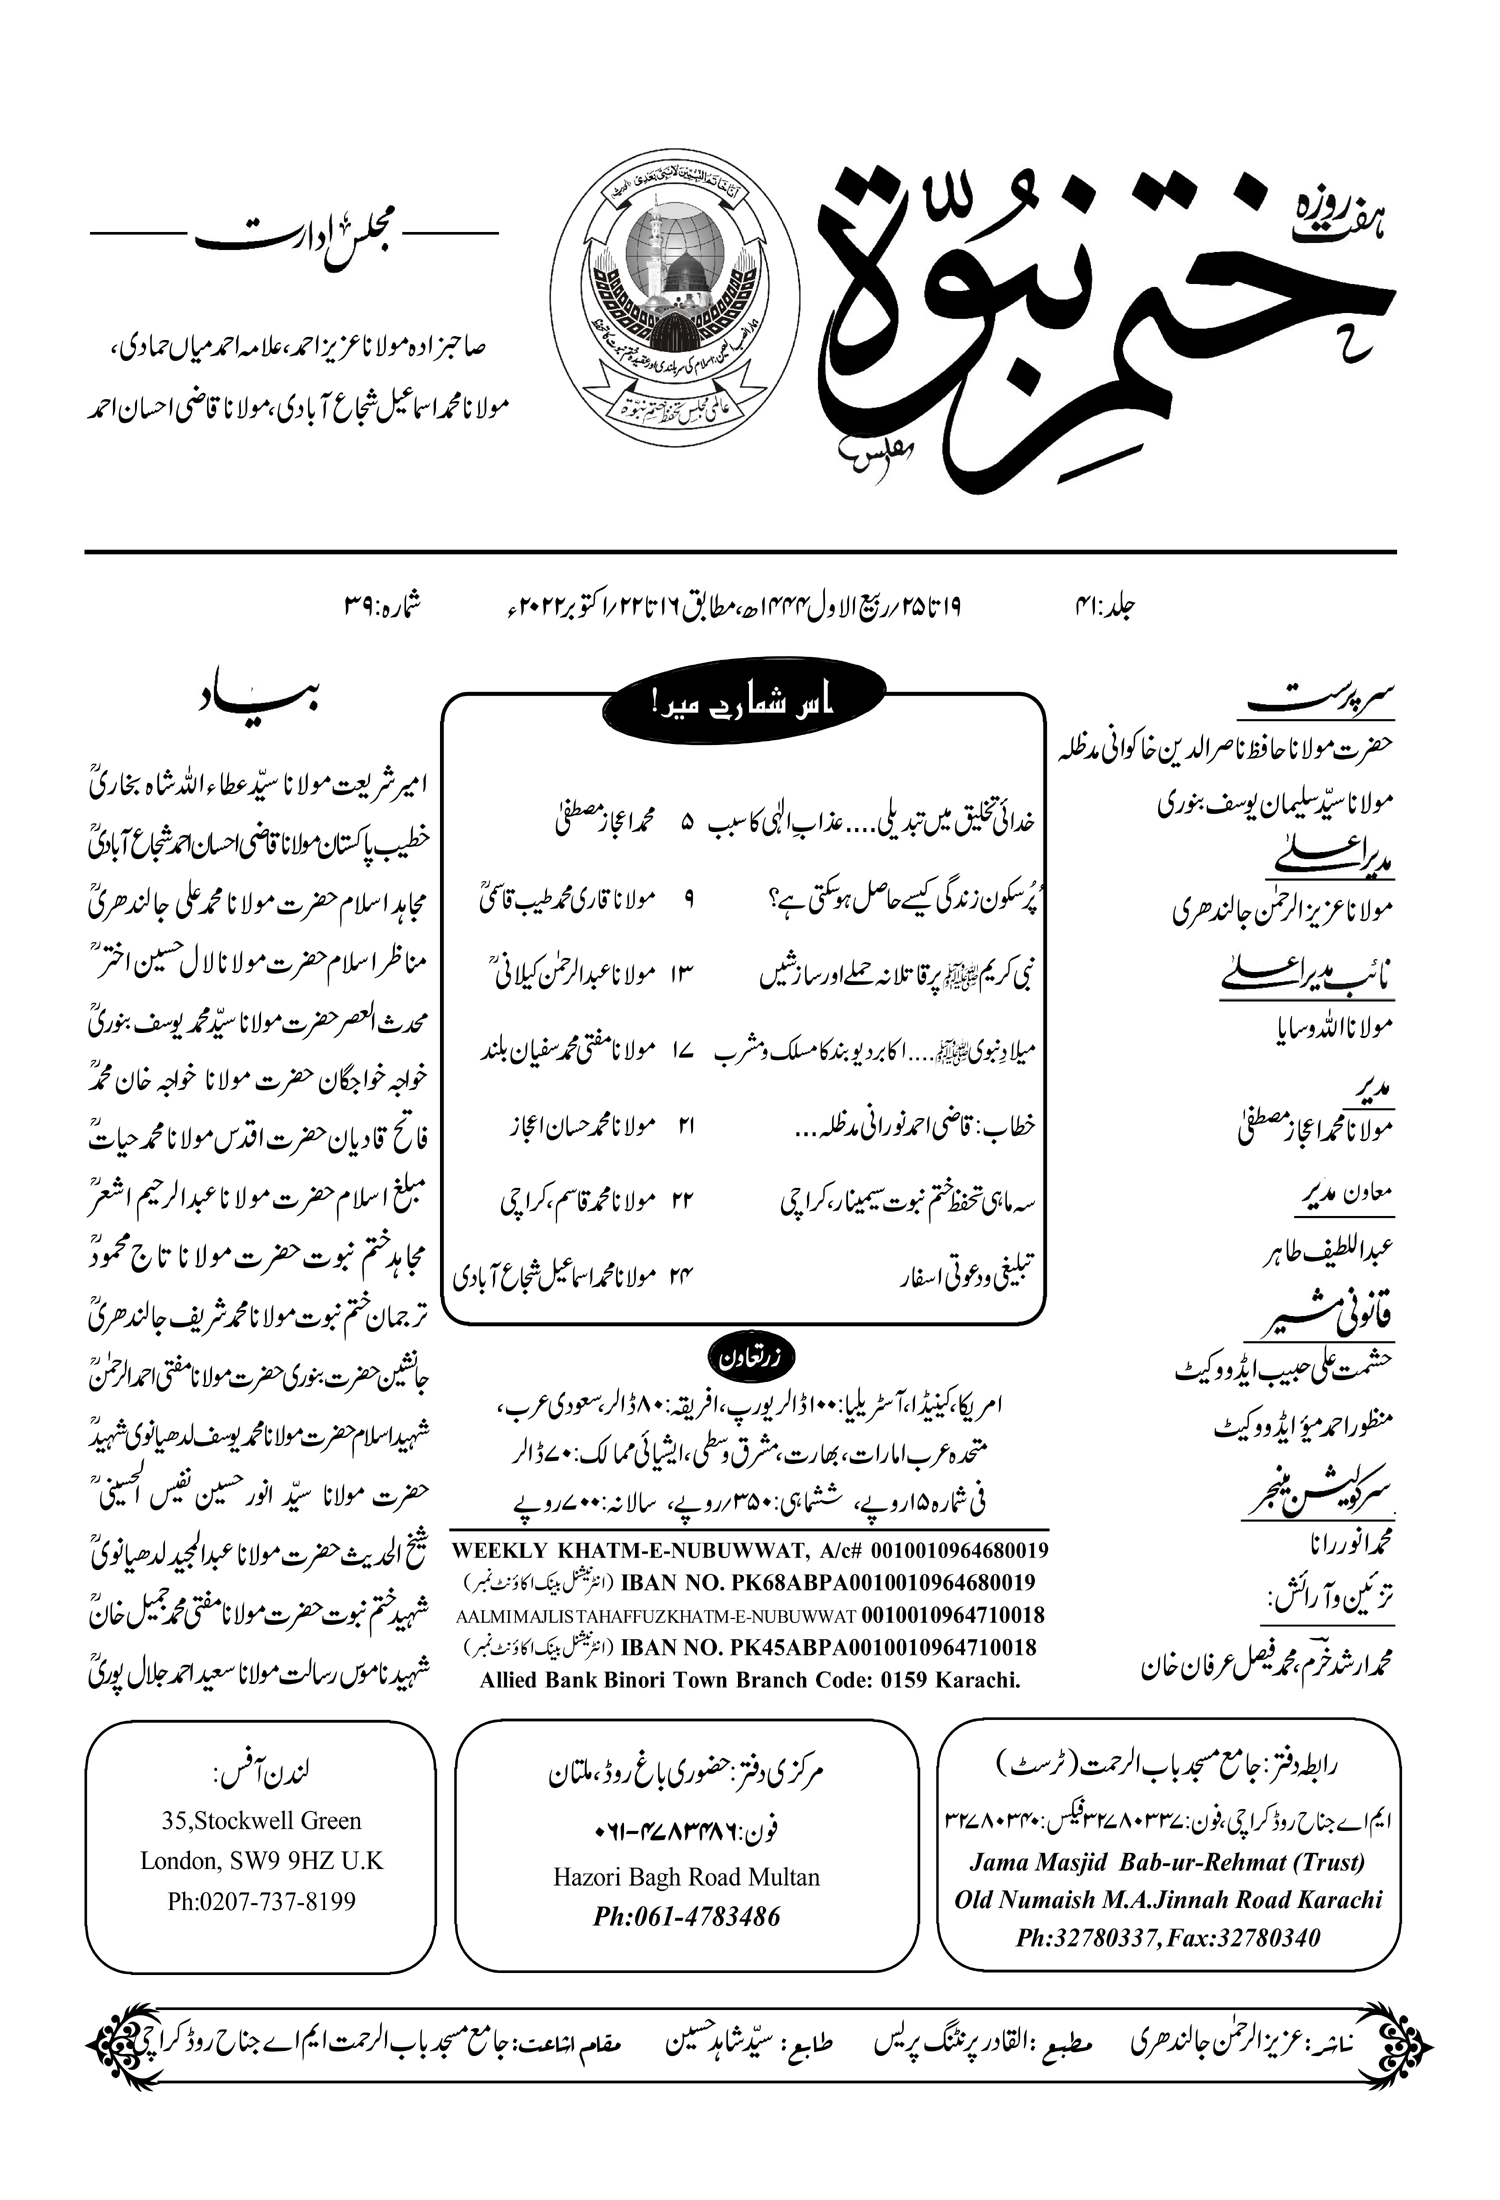 ہفت روزہ
ختم نبوّۃ
اَنَا خَاتَمُ النَّبِیِّیْنَ لَا نَبِیَّ بَعْدِیْ
عالمی مجلس تحفظ ختم نبوّۃ
مجلس ادارت
صاحبزادہ مولانا عزیز احمد، علامہ احمد میاں حمادی،
مولانا محمد اسماعیل شجاع آبادی، مولانا قاضی احسان احمد
جلد:۴۱ ۱۹ تا ۲۵؍ربیع الاول ۱۴۴۴ھ، مطابق ۱۶ تا ۲۲؍اکتوبر ۲۰۲۲ء شمارہ:۳۹
سرپرست
حضرت مولانا حافظ ناصر الدین خاکوانی مدظلہ
مولانا سیّد سلیمان یوسف بنوری
مدیر اعلےٰ
مولانا عزیز الرحمٰن جالندھری
نائب مدیر اعلےٰ
مولانا اللہ وسایا
مدیر
مولانا محمد اعجاز مصطفیٰ
معاون مدیر
عبداللطیف طاہر
قانونی مشیر
حشمت علی حبیب ایڈووکیٹ
منظور احمد میؤ ایڈووکیٹ
سرکولیشن مینجر
محمد انور رانا
تزئین و آرائش:
محمد ارشد خرم، محمد فیصل عرفان خان
اس شمارے میں!
خدائی تخلیق میں تبدیلی.... عذابِ الٰہی کا سبب ۵ محمد اعجاز مصطفیٰ
پُرسکون زندگی کیسے حاصل ہوسکتی ہے؟ ۹ مولانا قاری محمد طیب قاسمیؒ
نبی کریم ﷺ پر قاتلانہ حملے اور سازشیں ۱۳ مولانا عبدالرحمٰن کیلانیؒ
میلادِ نبوی ﷺ.... اکابر دیوبند کا مسلک و مشرب ۱۷ مولانا مفتی محمد سفیان بلند
خطاب: قاضی احمد نورانی مدظلہ... ۲۱ مولانا محمد حسان اعجاز
سہ ماہی تحفظ ختم نبوت سیمینار، کراچی ۲۲ مولانا محمد قاسم، کراچی
تبلیغی و دعوتی اسفار ۲۴ مولانا محمد اسماعیل شجاع آبادی
زرتعاون
امریکا، کینیڈا، آسٹریلیا: ۱۰۰ ڈالر یورپ، افریقہ: ۸۰ ڈالر، سعودی عرب،
متحدہ عرب امارات، بھارت، مشرق وسطی، ایشیائی ممالک: ۷۰ ڈالر
فی شمارہ ۱۵ روپے، ششماہی: ۳۵۰؍روپے، سالانہ: ۷۰۰ روپے
WEEKLY KHATM-E-NUBUWWAT, A/c# 0010010964680019
IBAN NO. PK68ABPA0010010964680019 (انٹرنیشنل بینک اکاؤنٹ نمبر)
AALMI MAJLIS TAHAFFUZ KHATM-E-NUBUWWAT 0010010964710018
IBAN NO. PK45ABPA0010010964710018 (انٹرنیشنل بینک اکاؤنٹ نمبر)
Allied Bank Binori Town Branch Code: 0159 Karachi.
بیاد
امیر شریعت مولانا سیّد عطاء اللہ شاہ بخاریؒ
خطیب پاکستان مولانا قاضی احسان احمد شجاع آبادیؒ
مجاہد اسلام حضرت مولانا محمد علی جالندھریؒ
مناظر اسلام حضرت مولانا لال حسین اخترؒ
محدث العصر حضرت مولانا سیّد محمد یوسف بنوریؒ
خواجہ خواجگان حضرت مولانا خواجہ خان محمدؒ
فاتح قادیان حضرت اقدس مولانا محمد حیاتؒ
مبلغ اسلام حضرت مولانا عبدالرحیم اشعرؒ
مجاہد ختم نبوت حضرت مولانا تاج محمودؒ
ترجمان ختم نبوت مولانا محمد شریف جالندھریؒ
جانشین حضرت بنوری حضرت مولانا مفتی احمد الرحمٰنؒ
شہید اسلام حضرت مولانا محمد یوسف لدھیانوی شہیدؒ
حضرت مولانا سیّد انور حسین نفیس الحسینیؒ
شیخ الحدیث حضرت مولانا عبدالمجید لدھیانویؒ
شہید ختم نبوت حضرت مولانا مفتی محمد جمیل خانؒ
شہید ناموس رسالت مولانا سعید احمد جلال پوریؒ
رابطہ دفتر: جامع مسجد باب الرحمت (ٹرسٹ)
ایم اے جناح روڈ کراچی، فون: ۳۲۷۸۰۳۳۷ فیکس: ۳۲۷۸۰۳۴۰
Jama Masjid Bab-ur-Rehmat (Trust)
Old Numaish M.A.Jinnah Road Karachi
Ph:32780337, Fax:32780340
مرکزی دفتر: حضوری باغ روڈ، ملتان
فون: ۰۶۱-۴۷۸۳۴۸۶
Hazori Bagh Road Multan
Ph:061-4783486
لندن آفس:
35,Stockwell Green
London, SW9 9HZ U.K
Ph:0207-737-8199
ناشر: عزیز الرحمٰن جالندھری مطبع: القادر پرنٹنگ پریس طابع: سیّد شاہد حسین مقام اشاعت: جامع مسجد باب الرحمت ایم اے جناح روڈ کراچی